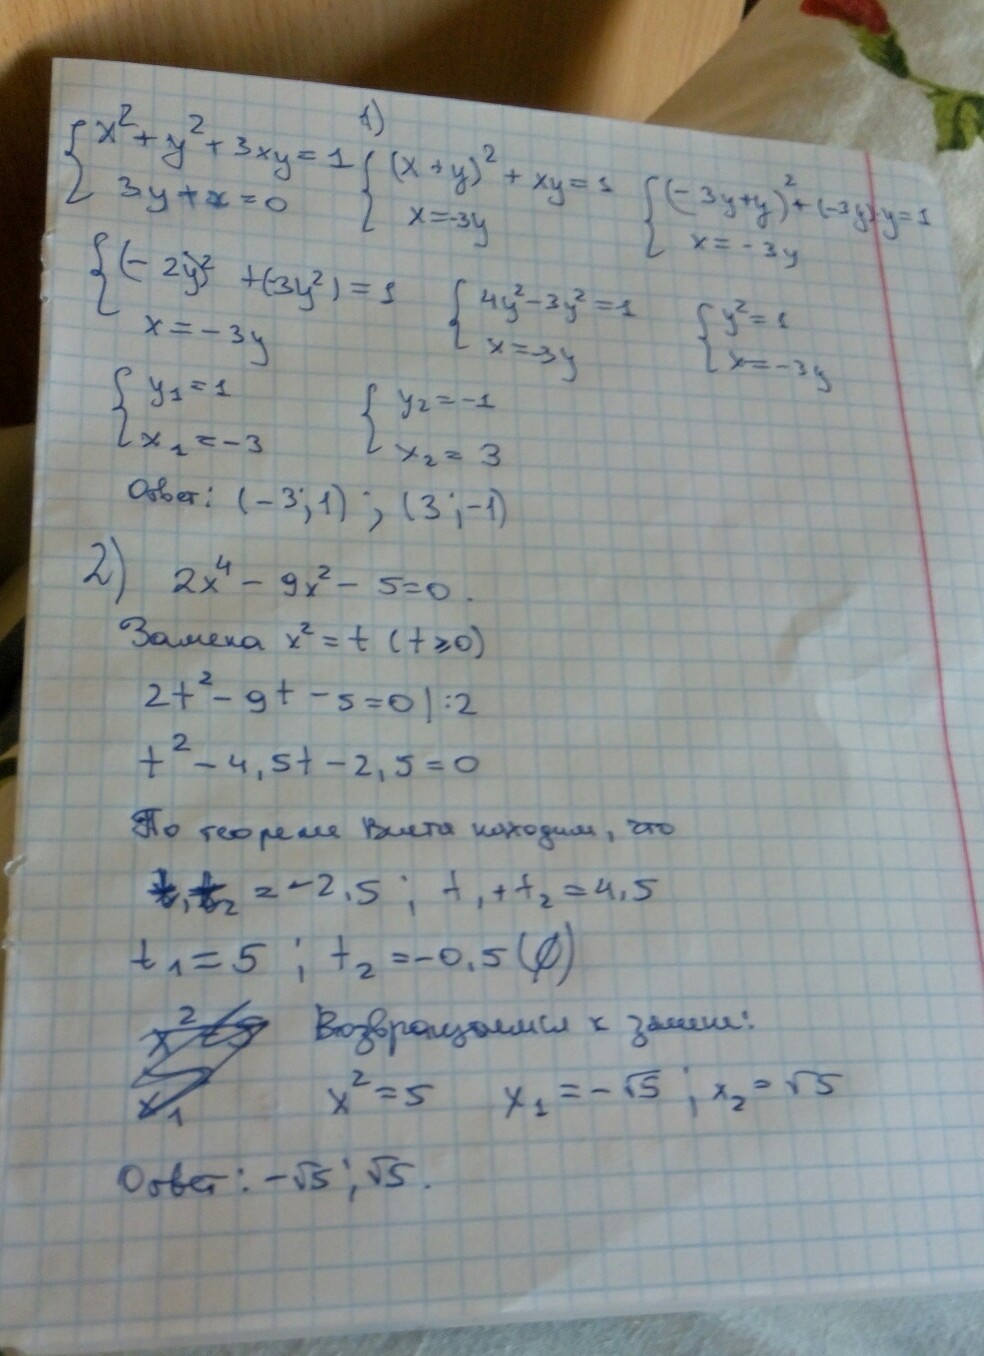 1)
{ x² + y² + 3xy = 1 { (x + y)² + xy = 1 { (-3y+y)² + (-3y)·y = 1
3y + x = 0 x = -3y x = -3y
{ (-2y)² + (-3y²) = 1 { 4y² - 3y² = 1 { y² = 1
x = -3y x = -3y x = -3y
{ y₁ = 1 { y₂ = -1
x₁ = -3 x₂ = 3
Ответ: (-3; 1) ; (3; -1)
2) 2x⁴ - 9x² - 5 = 0.
Замена x² = t (t ≥ 0)
2t² - 9t - 5 = 0 | :2
t² - 4,5t - 2,5 = 0
По теореме Виета находим, что
t₁t₂ = -2,5 ; t₁ + t₂ = 4,5
t₁ = 5 ; t₂ = -0,5 (∅)
Возвращаемся к замене:
x² = 5 x₁ = -√5 ; x₂ = √5
Ответ: -√5 ; √5.